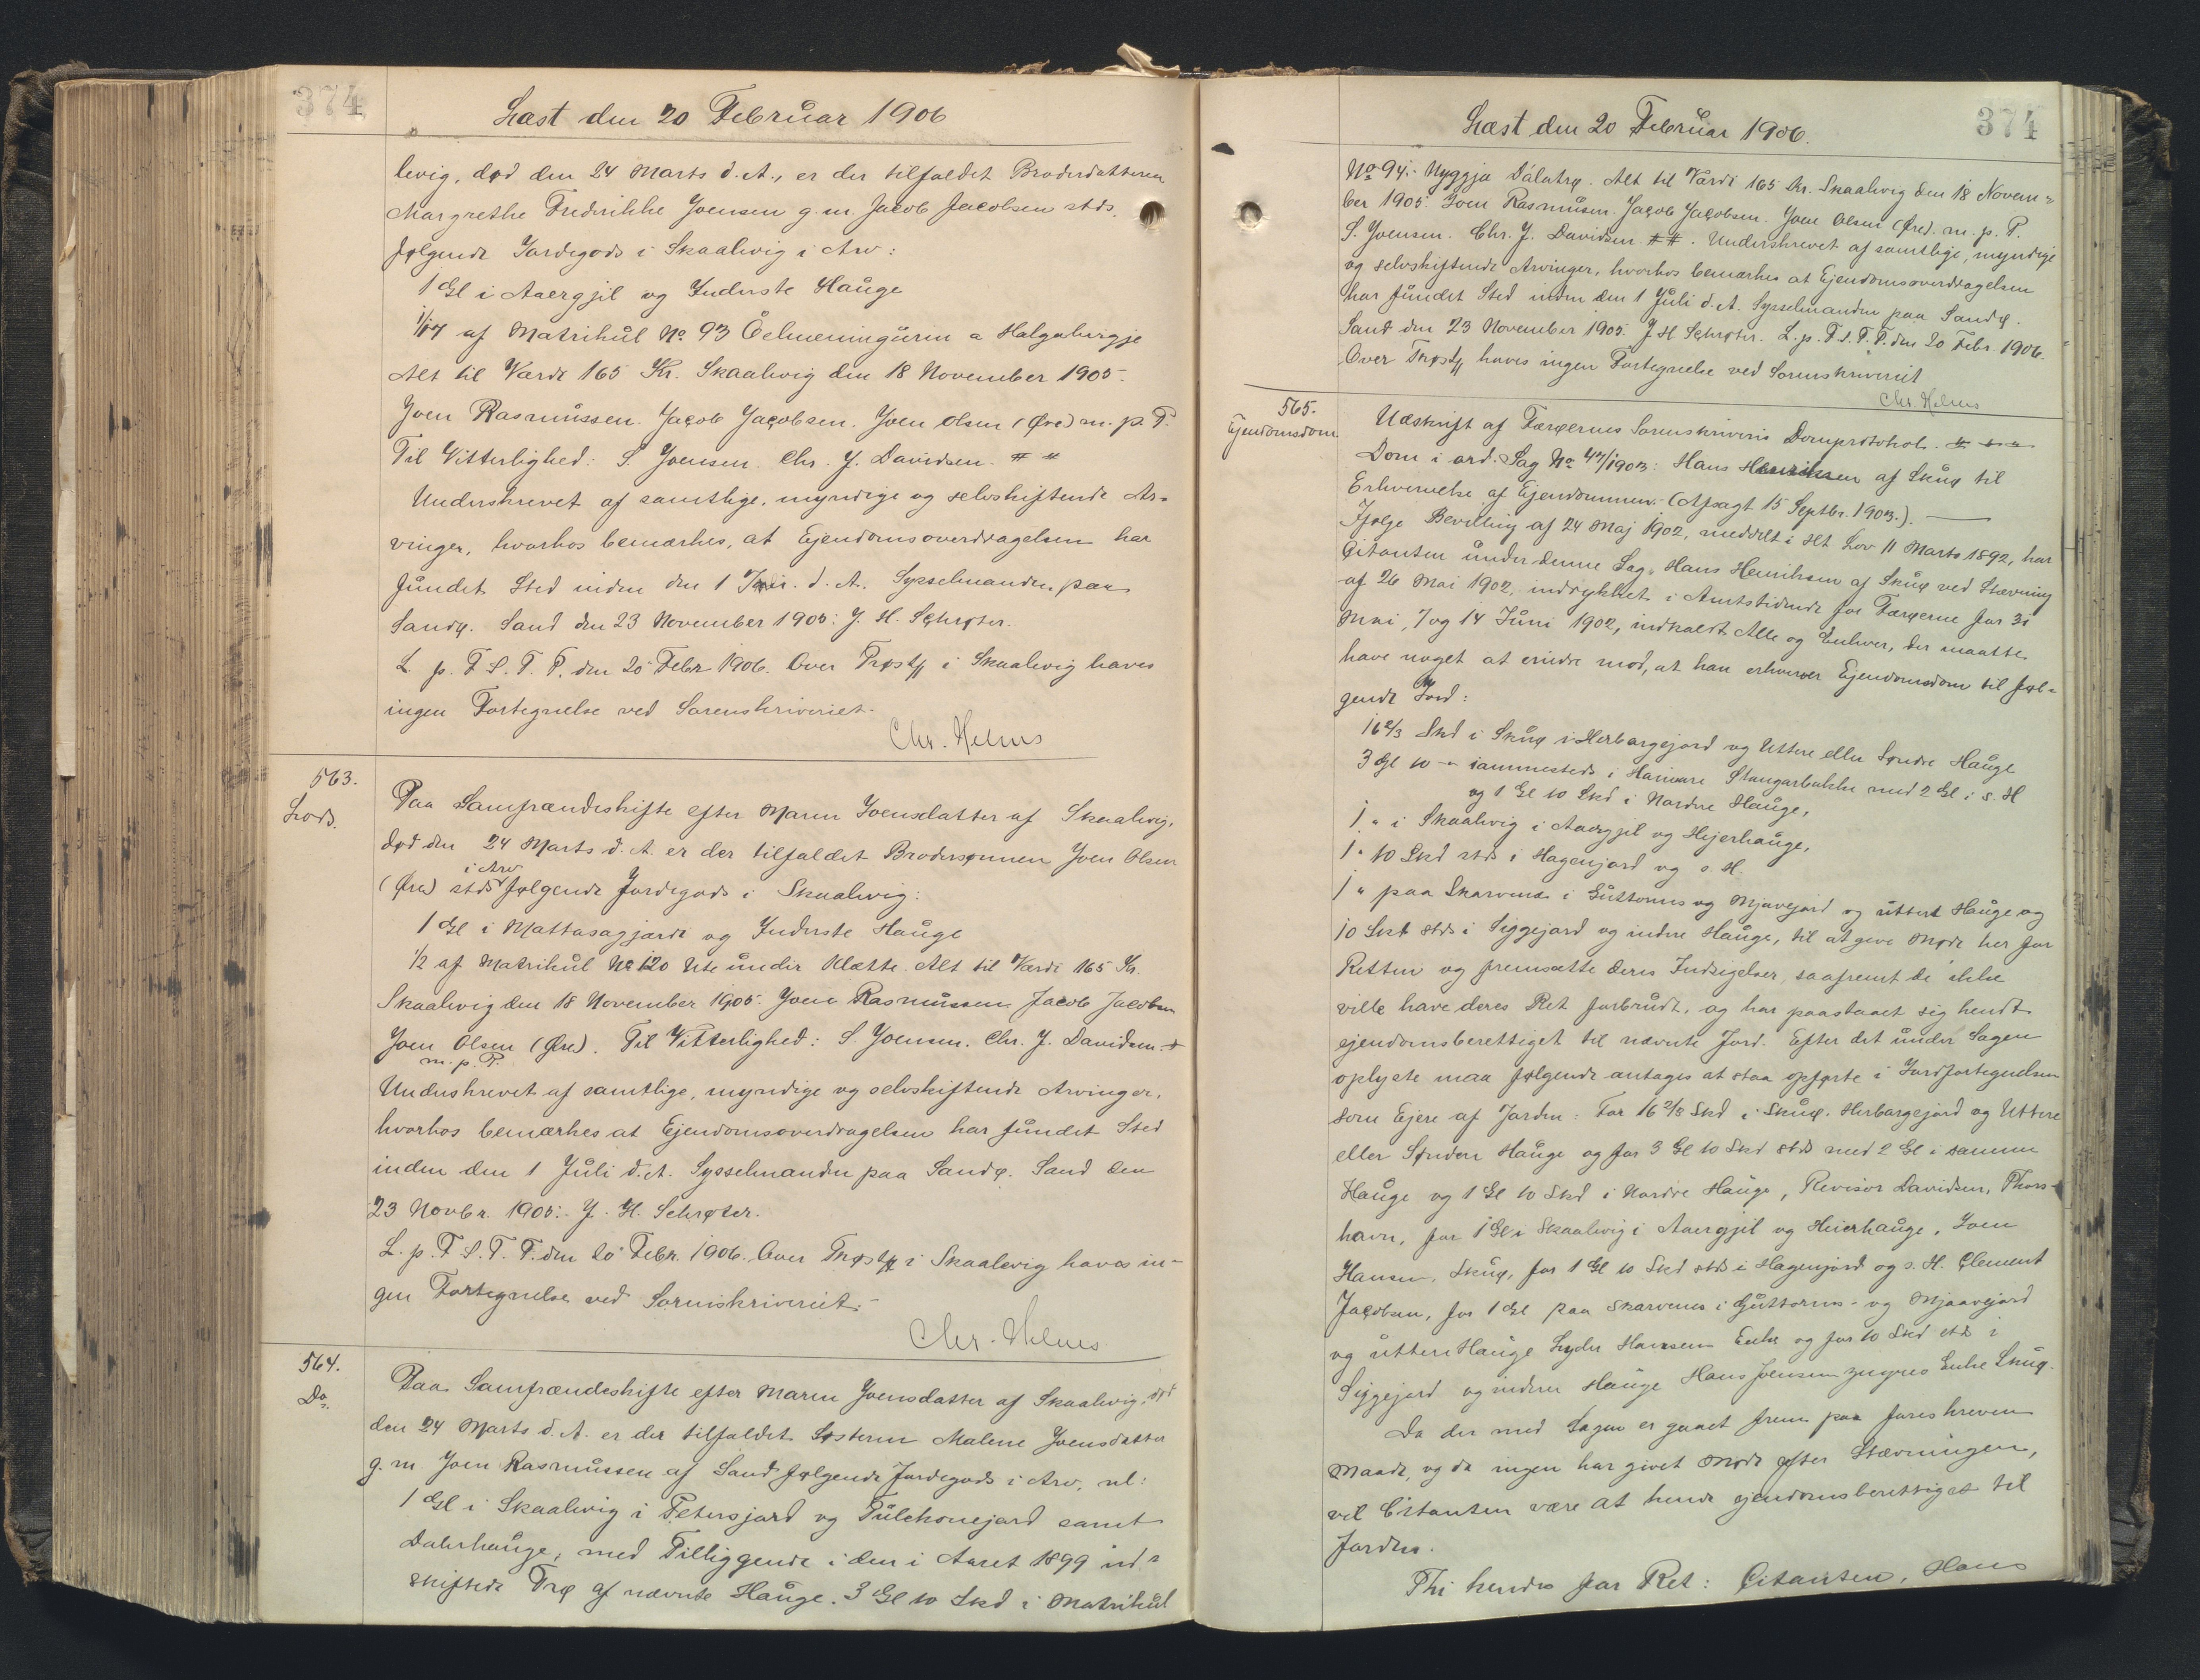 374
Læst den 20 Februar 1906
levig, død den 24 Marts d. A., er der tilfaldet Broderdatteren
Margrethe Frederikke Joensen g. m. Jacob Jacobsen stds.
følgende Jordegods i Skaalevig i Arv:
1 Gl i Aaergjil og Inderste Hauge
1/17 af Matrikul No 93 Eelmenningurin a Halgabergje
Alt til Værdi 165 Kr. Skaalevig den 18 November 1905.
Joen Rasmussen. Jacob Jacobsen. Joen Olsen (Øre) m. p. P.
Til Vitterlighed: S. Joensen. Chr. J. Davidsen. # "
Underskrevet af samtlige, myndige og selvskiftende Ar=
vinger, hvorhos bemærkes, at Ejendomsoverdragelsen har
fundet Sted inden den 1 Juli. d. A. Sysselmanden paa
Sandø. Sand den 23 November 1905: J. H. Schrøter.
L. p. F. S. T. P. den 20 Febr 1906. Over Trøst# i Skaalevig haves
ingen Fortegnelse ved Sorenskriveriet.
Chr. Helms
563.
Lods.
Paa Samfrændeskifte efter Maren Joensdatter af Skaalevig,
død den 24 Marts d. A. er der tilfaldet Brodersønnen Joen Olsen
i Arv
(Øre) stds følgende Jordegods i Skaalevig:
1 Gl i Mattasagjærdi og Inderste Hauge
1/2 af Matrikul No 120 Ute under Klætte. Alt til Værdi 165 Kr.
Skaalevig den 18 November 1905. Joen Rasmussen Jacob Jacobsen
Joen Olsen (Øre). Til Vitterlighed: S. Joensen. Chr. J. Davidsen. #
m. p. P.
Underskrevet af samtlige, myndige og selvskiftende Arvinger,
hvorhos bemærkes at Ejendomsoverdragelsen har fundet Sted
inden den 1 Juli d. A. Sysselmanden paa Sandø. Sand den
23 Novbr. 1905:. J. H. Schrøter.
L. p. F. S. T. P. den 20 Febr. 1906. Over Trøst# i Skaalevig haves in-
gen Fortegnelse ved Sorenskriveriet.
Chr. Helms
564.
Do.
Paa Samfrændeskifte efter Maren Joensdatter af Skaalevig, død
den 24 Marts d. A. er der tilfaldet Søsteren Malene Joensdatter
g. m. Joen Rasmussen af Sand følgende Jordegods i Arv, nl:
1 Gl i Skaalevig i Petersjord og Pulchonejord samt
Dalerhauge, med Tilliggende i den i Aaret 1899 ud=
skiftede Trø af nævnte Hauge. 3 Gl 10 Skd i Matrikul
374
Læst den 20 Februar 1906.
No 94i. Nyggja Dálatrø. Alt til Værdi 165 Kr. Skaalevig den 18 Novem=
ber 1905. Joen Rasmusen. Jacob Jacobsen. Joen Olsen (Øre). m. p. P.
S. Joensen. Chr. J. Davidsen. ##. Underskrevet af samtlige, myndige
og selvskiftende Arvinger, hvorhos bemærkes at Ejendomsoverdragelsen
har fundet Sted inden den 1 Juli d. A. Sysselmanden paa Sandø.
Sand den 23 November 1905. J H Schrøter. L. p. F. S. T. P. den 20 Febr. 1906.
Over Trøst# haves ingen Fortegnelse ved Sorenskriveriet
Chr. Helms
565.
Ejendomsdom
Udskrift af Færøernes Sorenskriveris Domprotokol.
Dom i ord. Sag No 47/1903: Hans Henriksen af Skuø til
Erhvervelse af Ejendommen. (Afsagt 15 Septbr. 1903.).
Ifølge Bevilling af 24 Maj 1902, meddelt i Hht Lov 11 Marts 1892, har
Citanten under denne Sag, Hans Henriksen af Skuø ved Stævning
af 26 Mai 1902, indrykket i Amtstidende for Færøerne for 31
Mai, 7 og 14 Juni 1902, indkaldt Alle og Enhver, der maatte
have noget at erindre mod, at han erhverver Ejendomsdom til føl=
gende Jord:
16 2/3 Skd i Skuø i Herbargejord og Uttere eller Søndre Hauge
3 Gl 10 - " sammesteds i Hamare Stangarbakke med 2 Gl i s. H
og 1 Gl 10 Skd i Nordre Hauge,
1 " i Skaalevig i Aaergjil og Hejerhauge,
1 " 10 Skd stds i Hagenjord og s. H.
1 " paa Skarvenes i Guttorms og Mjavejord og uttere Hauge og
10 Skd stds i Siggejord og indre Hauge, til at give Møde her for
Retten og fremsætte deres Indsigelser, saafremt de ikke
ville have deres Ret forbrudt, og har paastaaet sig kendt
ejendomsberettiget til nævnte Jord. Efter det under Sagen
oplyste maa følgende antages at staa opførte i Jordfortegnelsen
som Ejere af Jorden: For 16 2/3 Skd i Skuø. Herbargejord og Uttere
eller Søndere Hauge og for 3 Gl 10 Skd stds med 2 Gl i samme
Hauge og 1 Gl 10 Skd i Nordre Hauge, Revisor Davidsen, Thors-
havn, for 1 Gl i Skaalevig i Aaergjil og Heierhauge, Joen
Hansen, Skuø, for 1 Gl 10 Skd stds i Hagenjord og s. H. Clement
Jacobsen, for 1 Gl paa Skarvenes i Guttorms- og Mjaavejord
og uttere Hauge Lyder Hansens Enke og for 10 Skd stds i
Siggejord og indre Hauge Hans Joensen yngres Enke Skuø.
Da der med Sagen er gaaet frem paa foreskreven
Maade, og da ingen har givet Møde efter Stævningen,
vil Citanten være at kende ejendomsberettiget til
Jorden.
Thi kendes for Ret: Citanten, Hans